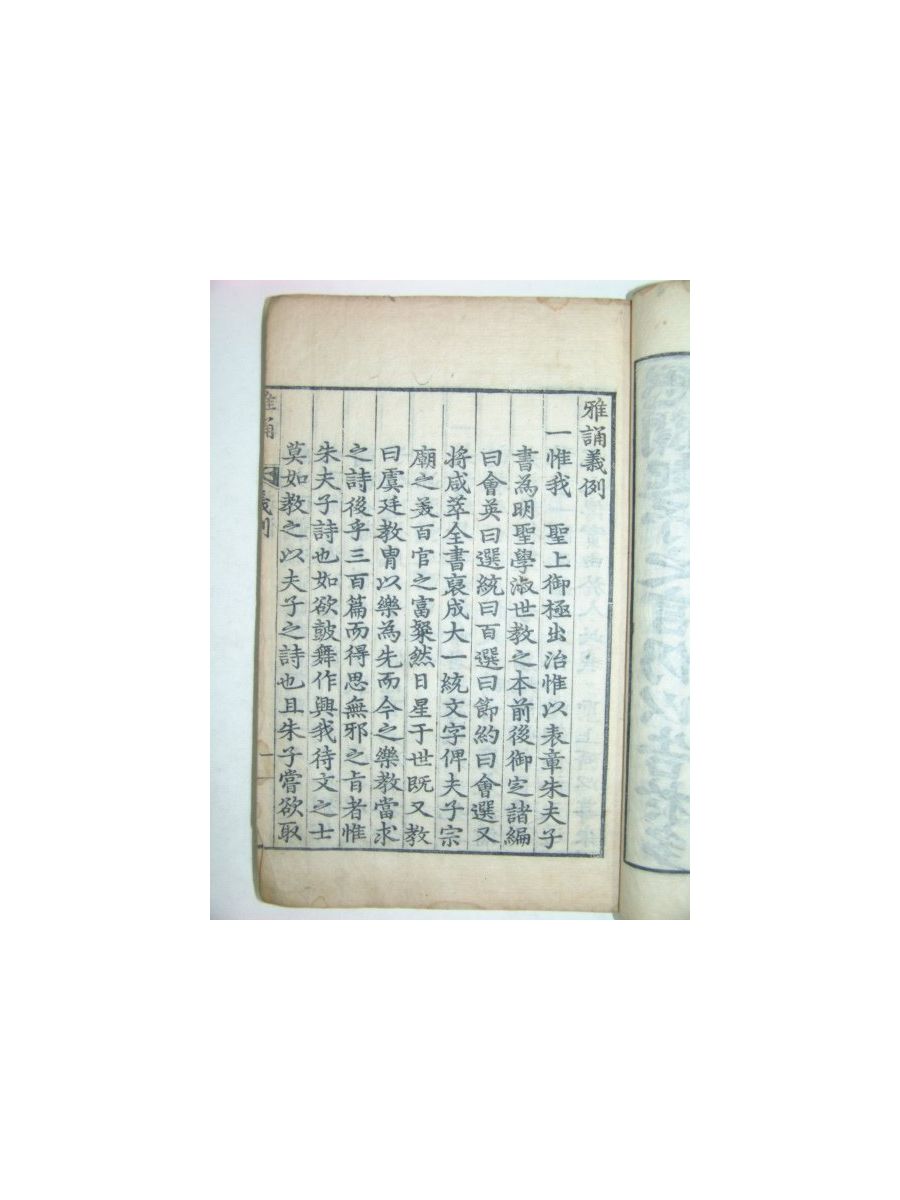 雅誦義例
一惟我 聖上御極出治惟以表章朱夫子
書為明聖學淑世教之本前後御定諸編
曰會英曰選統曰百選曰節約曰會選又
將咸萃全書裒成大一統文字俾夫子宗
廟之美百官之富粲然日星于世既又教
曰虞廷教胄以樂為先而今之樂教當求
之詩後乎三百篇而得思無邪之旨者惟
朱夫子詩也如欲皷舞作興我待文之士
莫如教之以夫子之詩也且朱子嘗欲取
雅誦 義例 一